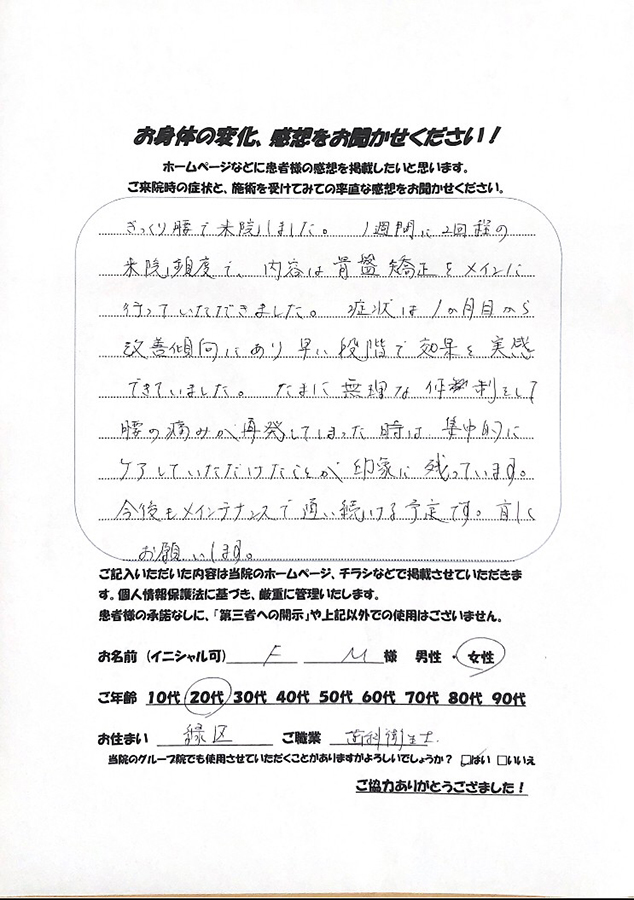 お身体の変化、感想をお聞かせください！
ホームページなどに患者様の感想を掲載したいと思います。
ご来院時の症状と、施術を受けてみての率直な感想をお聞かせください。
ぎっくり腰で来院しました。 1週間に2回程の
来院頻度で、内容は骨盤矯正をメインに
行っていただきました。 症状は1ヵ月目から
改善傾向にあり早い段階で効果を実感
できていました。 たまに無理な体制をして
腰の痛みが再発してしまった時は集中的に
ケアしていただけたことが印象に残っています。
今後もメインテナンスで通い続ける予定です。宜しく
お願いします。
ご記入いただいた内容は当院のホームページ、チラシなどで掲載させていただきま
す。個人情報保護法に基づき、厳重に管理いたします。
患者様の承諾なしに、「第三者への開示」や上記以外での使用はございません。
お名前（イニシャル可） F M 様 男性 ・ 女性
ご年齢 10代 20代 30代 40代 50代 60代 70代 80代 90代
お住まい 緑区 ご職業 歯科衛生士
当院のグループ院でも使用させていただくことがありますがよろしいでしょうか？ ☑はい □いいえ
ご協力ありがとうござました！